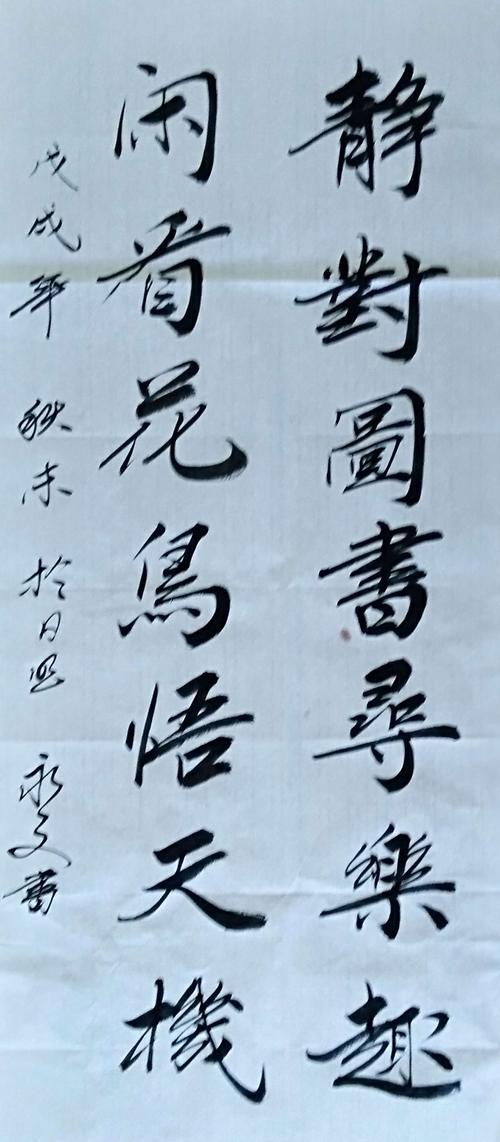 静對圖書尋樂趣
闲看花鳥悟天機
戊戌年 秋末 於日照 永文書